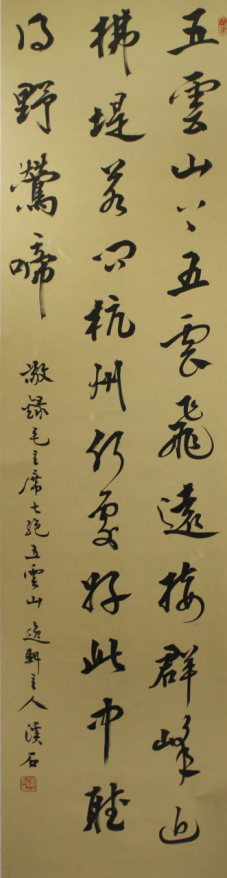 五雲山上五雲飛遠接群峰近
拂堤若问杭州何處好此中聽
得野鶯啼
敬録毛主席七絕五雲山 逸軒主人 溪石